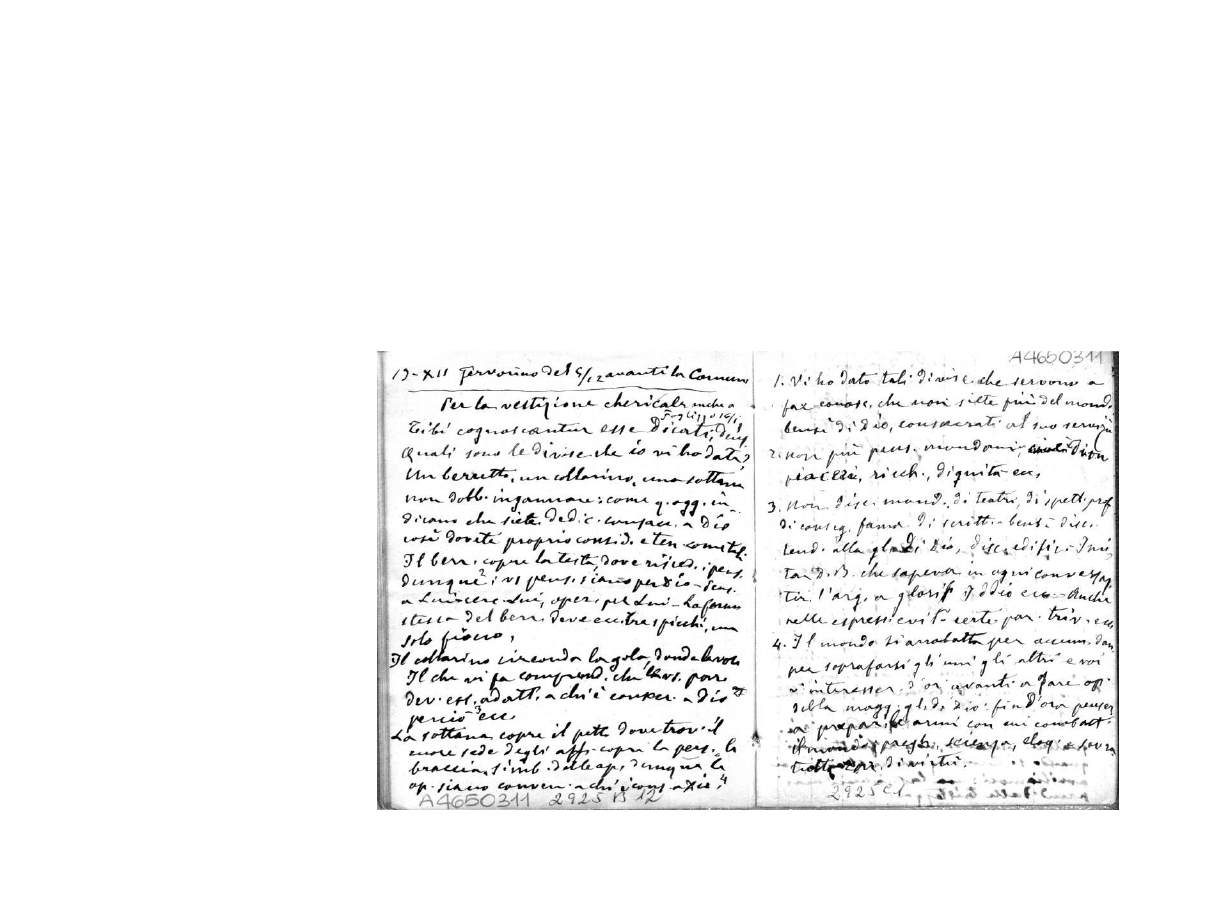 19-XII Fervorino del 9/12 avanti la Comun
Per la vestizione chericale anche a
Foglizzo
tibi cognoscantur esse Dicati,
Quali sono le divise che io vi ho date?
Un berretto, un collarino, una sottana
non dobb. ingannare: come q. ogg. in-
dicano che siete dedic. consacr. a Dio
così dovete proprio consid. e ten. come tali.
Il berr. copre la testa, dove risied. i pens.
dunque 2 i vs pens. siano per Dio - Pens.
a Lui cerc. Lui, oper. per Lui - La forma
stessa del berr. deve ecc. tre spicchi, un
solo fiocco,
Il collarino circonda la gola, donde la voce
Il che vi fa comprend. che le vs. paro
dev. ess. adatt. a chi è consacr. a Dio
perciò 3 ecc.
La sottana copre il petto dove trov. il
cuore sede degli aff. copri la pers. le
braccia, simb. delle op. dunque le
op. siano conven. a chi è cons. a Dio, 4
A4650311 2925 B 12
A4650311
1. Vi ho dato tali divise che servono a
far conosc. che non siete più del mondo,
bensì di Dio, consacrati al suo servizio
2. non più pens. mondani,
piaceri, ricch., dignità ecc.
3. Non disc. mond. di teatri, di spett. prof
di conseg. fama di scritt. bensì disc.
tend. alla gl. di Dio, disc. edific. Imi
tan D. B. che sapeva in ogni convers.
tir. l'arg. a glorif. Iddio ecc. - Anche
nelle espress. evit. certe par. triv. ecc
4. Il mondo si arrabatta per accum. dan
per soprafarsi gli uni gli altri e voi
v'interesser. d'or avanti a fare op.
della magg. gl. di Dio: fin d'ora pensar
a prepar. le armi con cui combatt.
il mondo, pregh., scienza, eloq. e sovra
tutto di virtù.
2925 C1